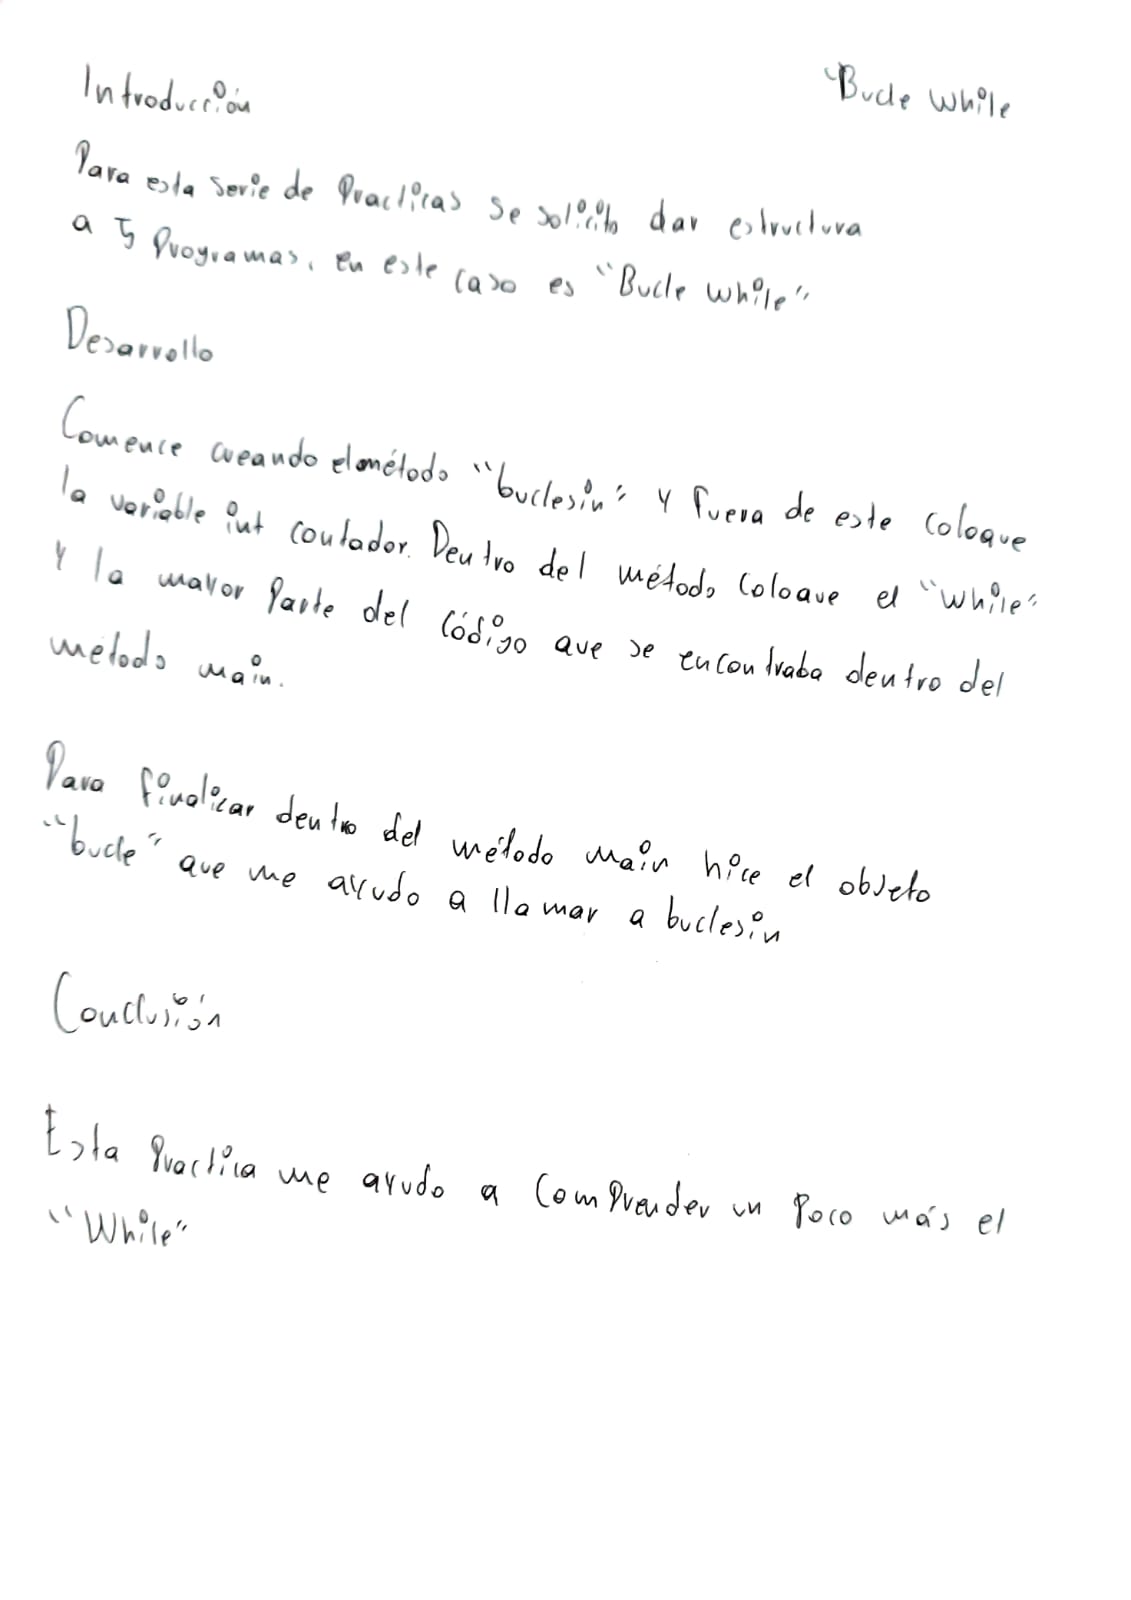 Introducción
"Bucle While
Para esta serie de Practicas se solicito dar estructura
a 5 Programas, en este caso es "Bucle while"
Desarrollo
Comence creando el método "buclesin" y fuera de este coloque
la variable int contador. Dentro del método coloque el "while"
y la mayor Parte del código que se encontraba dentro del
metodo main.
Para finalizar dentro del método main hice el objeto
"bucle" que me ayudo a llamar a buclesin
Conclusión
Esta Practica me ayudo a comprender un poco más el
"While"